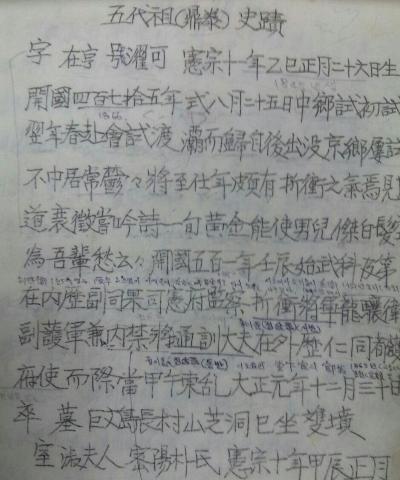 五代祖(鼎泰) 史蹟
字 在亨 號濯可 憲宗十一年乙巳正月二十六日生
開國四百七拾五年式八月二十五日中鄉試初試
1866
翌年春赴會試渡灞而歸自後出没京鄉屢試
不中居常鬱々將至仕年頗有折衝之氣焉見
道衰徵嘗吟詩一句黃金能使男兒傑白髮
為吾輩愁云々 開國五百一年壬辰始武科及第
在內歷副司果司憲府監察 折衝將軍龍驤衛
副護軍兼內禁將通訓大夫在外歷仁同
府使而際當甲午東乱 大正元年十二月三十日
卒 墓巨文島長村山芝洞巳坐雙墳
室淑夫人密陽朴氏 憲宗十年甲辰正月